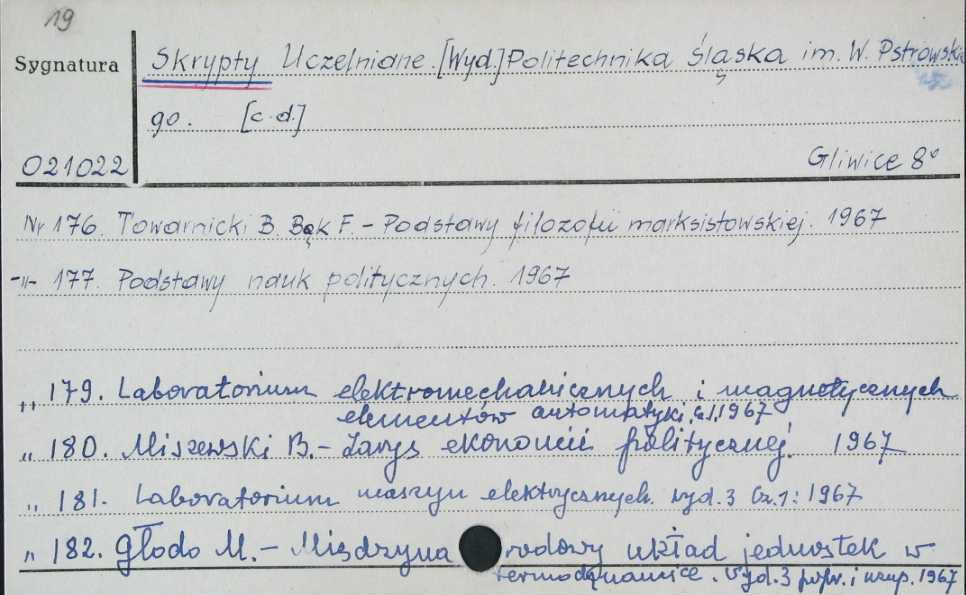 19
Sygnatura
Skrypty Uczelniane. [Wyd.] Politechnika Śląska im. W. Pstrowskie
go. [c.d.]
021022
Gliwice 8°
Nr 176. Towarnicki B. Bąk F. - Podstawy filozofii marksistowskiej. 1967
-"- 177. Podstawy nauk politycznych. 1967
" 179. Laboratorium elektromechanicznych i magnetycznych
elementów automatyki. cz.1. 1967
" 180. Miszewski B. - Zarys ekonomii politycznej. 1967
" 181. Laboratorium maszyn elektrycznych. wyd. 3 Cz. 1: 1967
" 182. Głodo M. - Międzynarodowy układ jednostek w
termodynamice. Wyd. 3 popr. i uzup. 1967